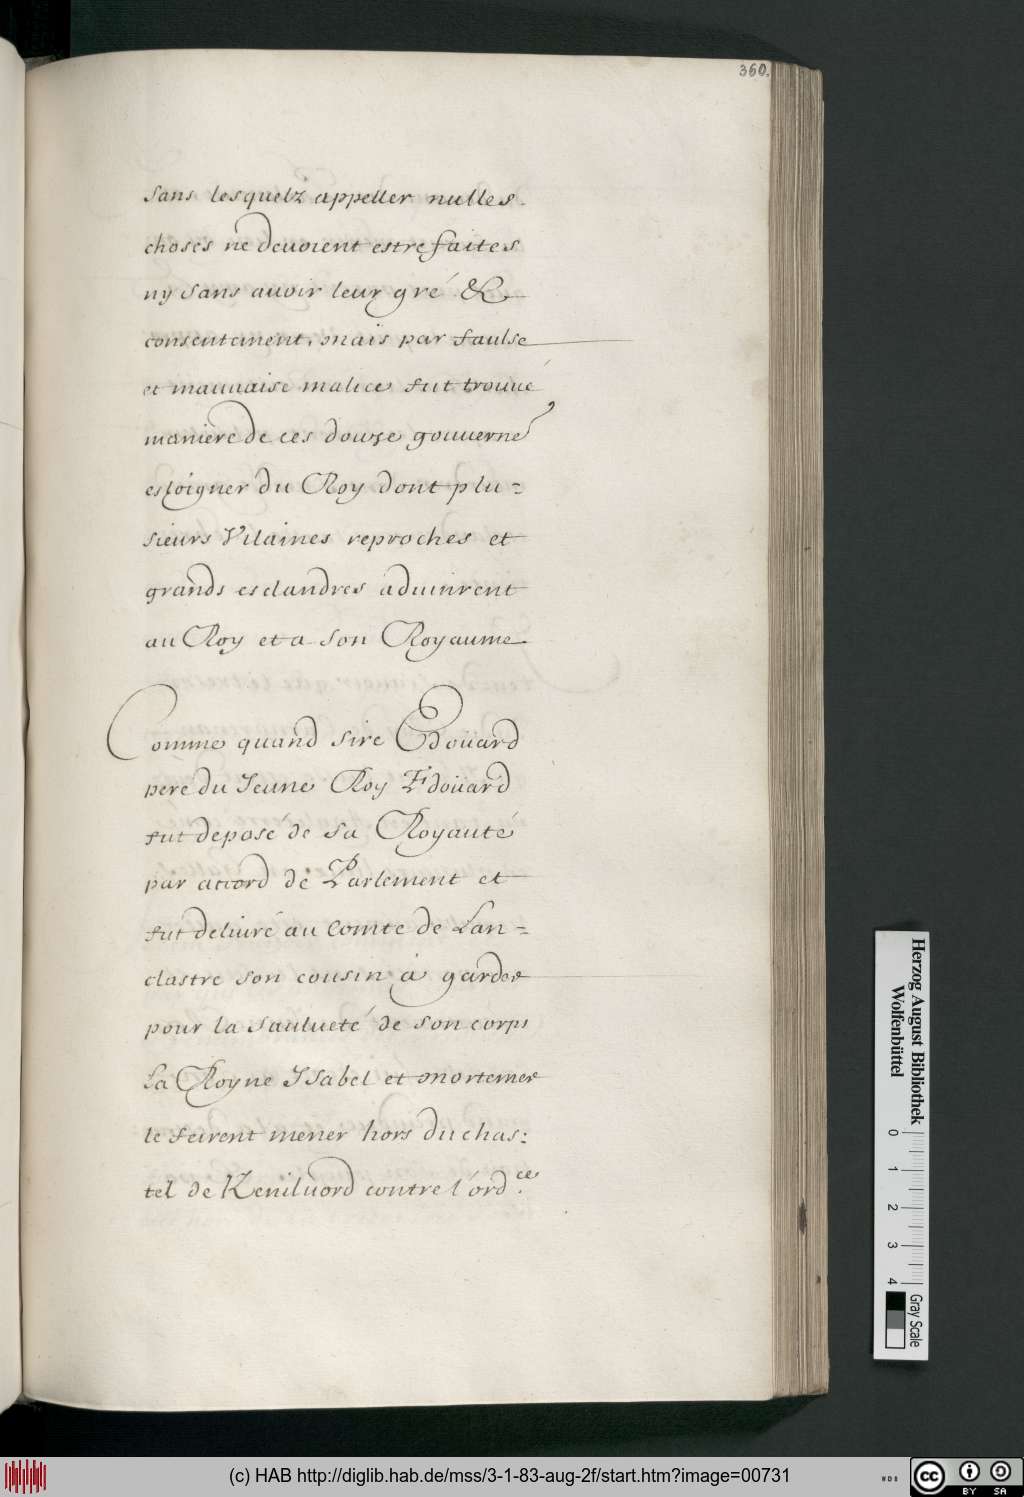 360.
sans lesquelz appeller nulles
choses ne deuoient estre faites
ny sans auoir leur gré &
consentement, mais par faulse
et mauuaise malice fut trouué
maniere de ces douze gouuerne
esloigner du Roy dont plu=
sieurs Vilaines reproches et
grands esclandres aduinrent
au Roy et a son Royaume
Comme quand sire Edoüard
pere du Jeune Roy Edoüard
fut deposé de sa Royauté
par accord de Parlement et
fut deliuré au Comte de Lan=
clastre son cousin à garder
pour la saulueté de son corps
La Royne Isabel et mortemer
le feirent mener hors du chas=
tel de Keniluord contre l'ord.ce
Herzog August Bibliothek
Wolfenbüttel
0 1 2 3 4
Gray Scale
(c) HAB http://diglib.hab.de/mss/3-1-83-aug-2f/start.htm?image=00731
WDB
cc BY SA